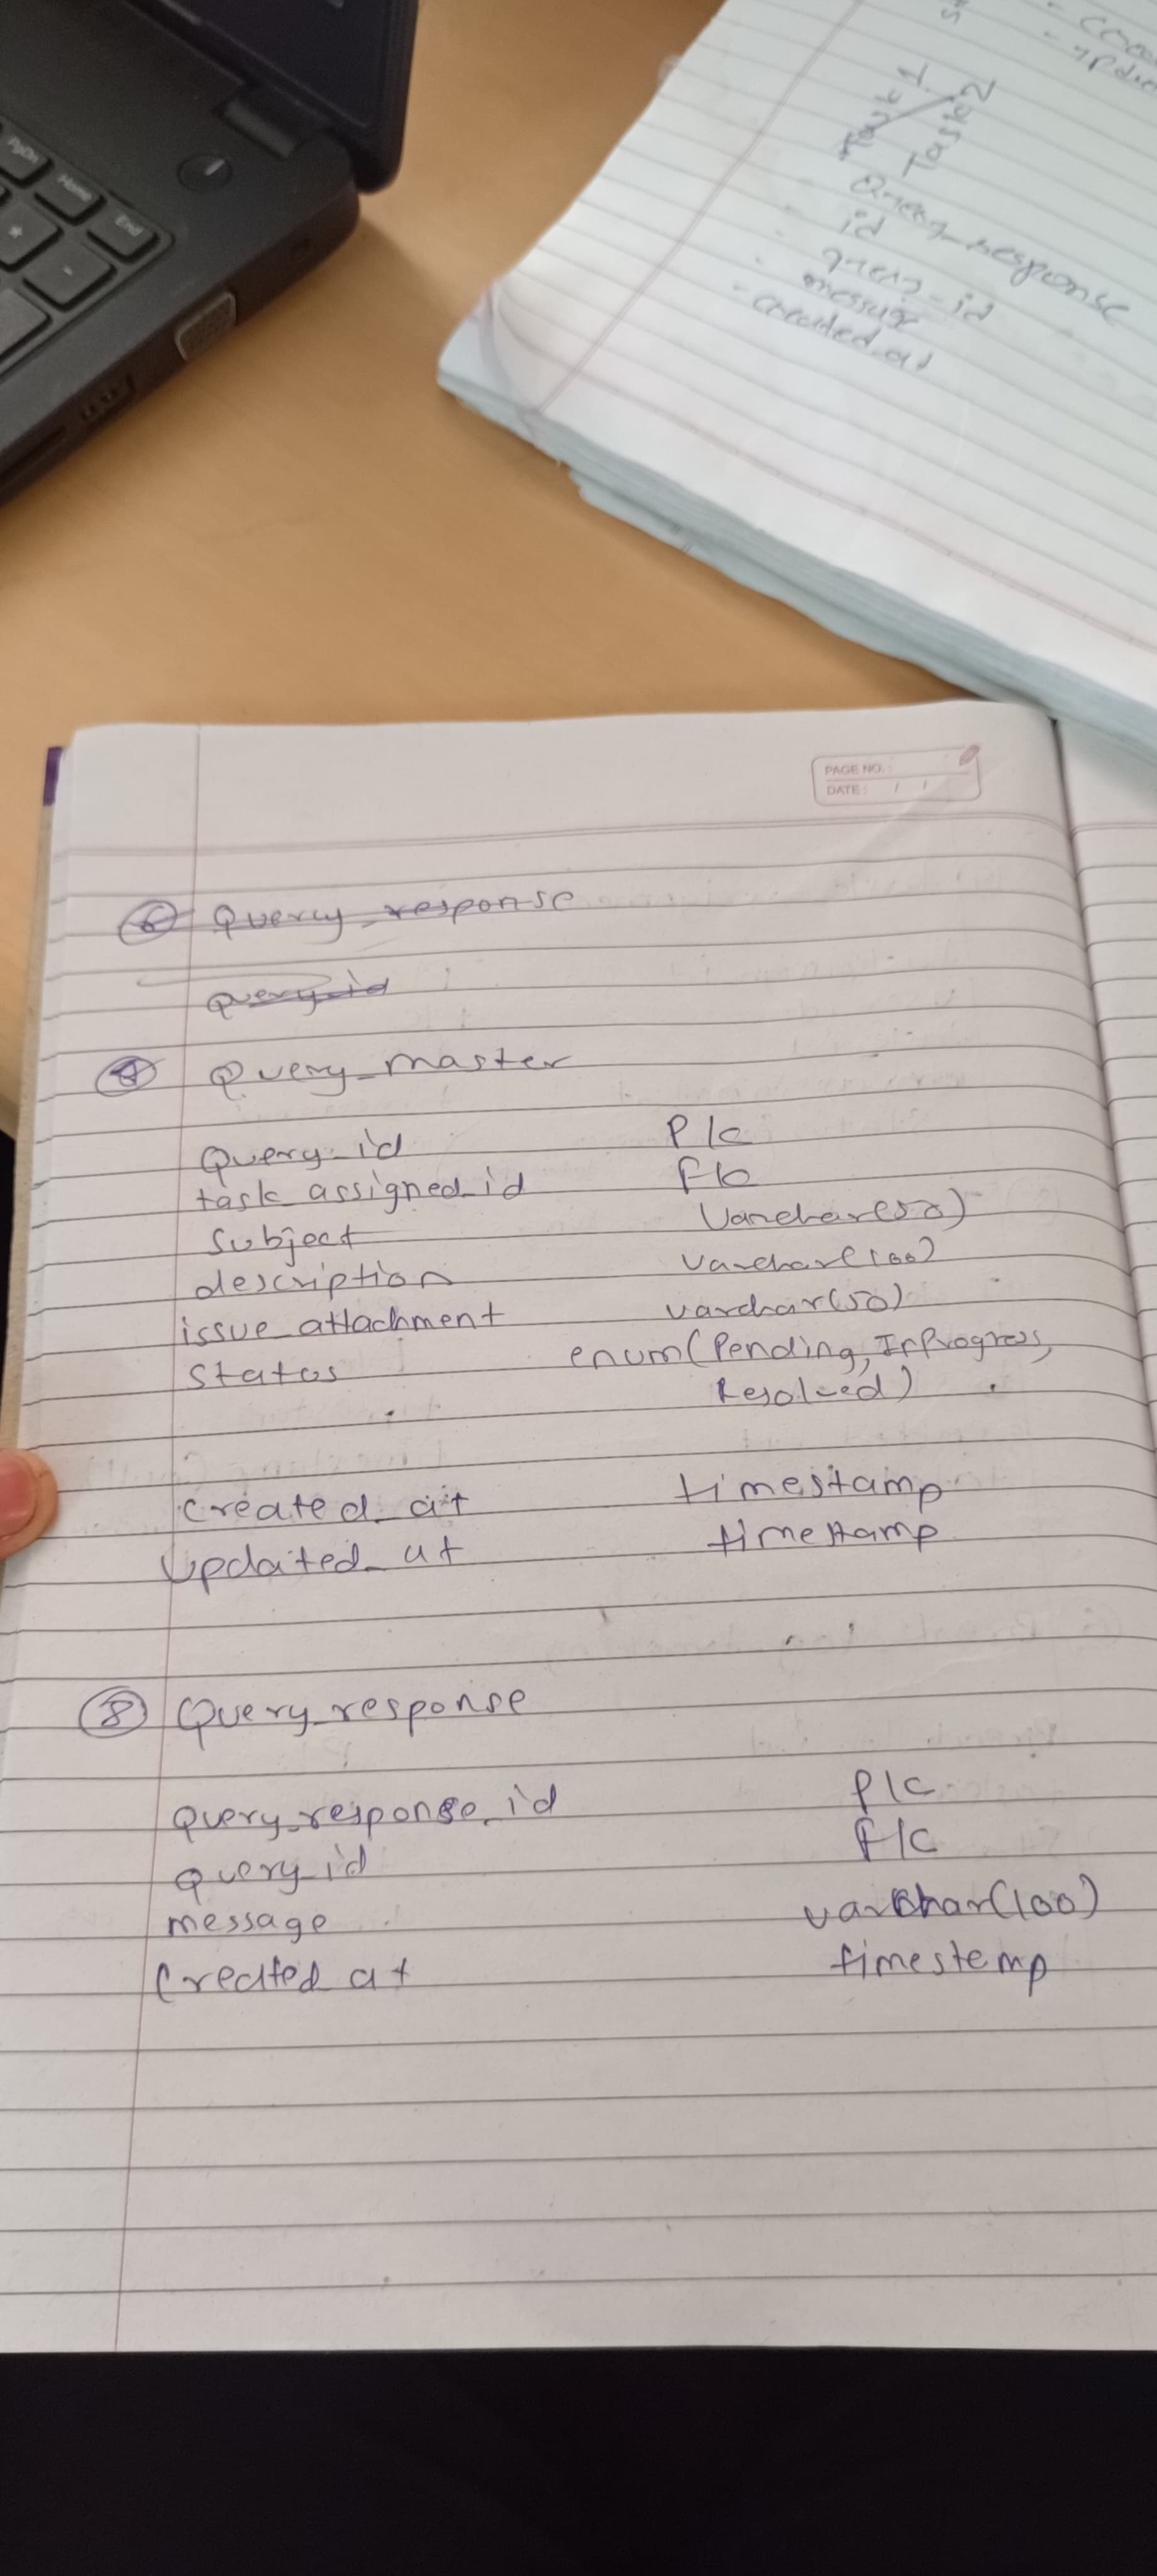 PgDn
Home
End
Task 1
Task 2
Query_response
id
query_id
message
created_at
PAGE NO.:
DATE: / /
6 Query_response
Query_id
7 Query_master
Query_id PK
task_assigned_id FK
Subject Varchar(50)
description varchar(100)
issue_attachment varchar(50)
Status enum(Pending, InProgress,
Resolved)
Created_at timestamp
Updated_at timestamp
8 Query_response
Query_response_id PK
query_id FK
message varchar(100)
Created_at timestemp